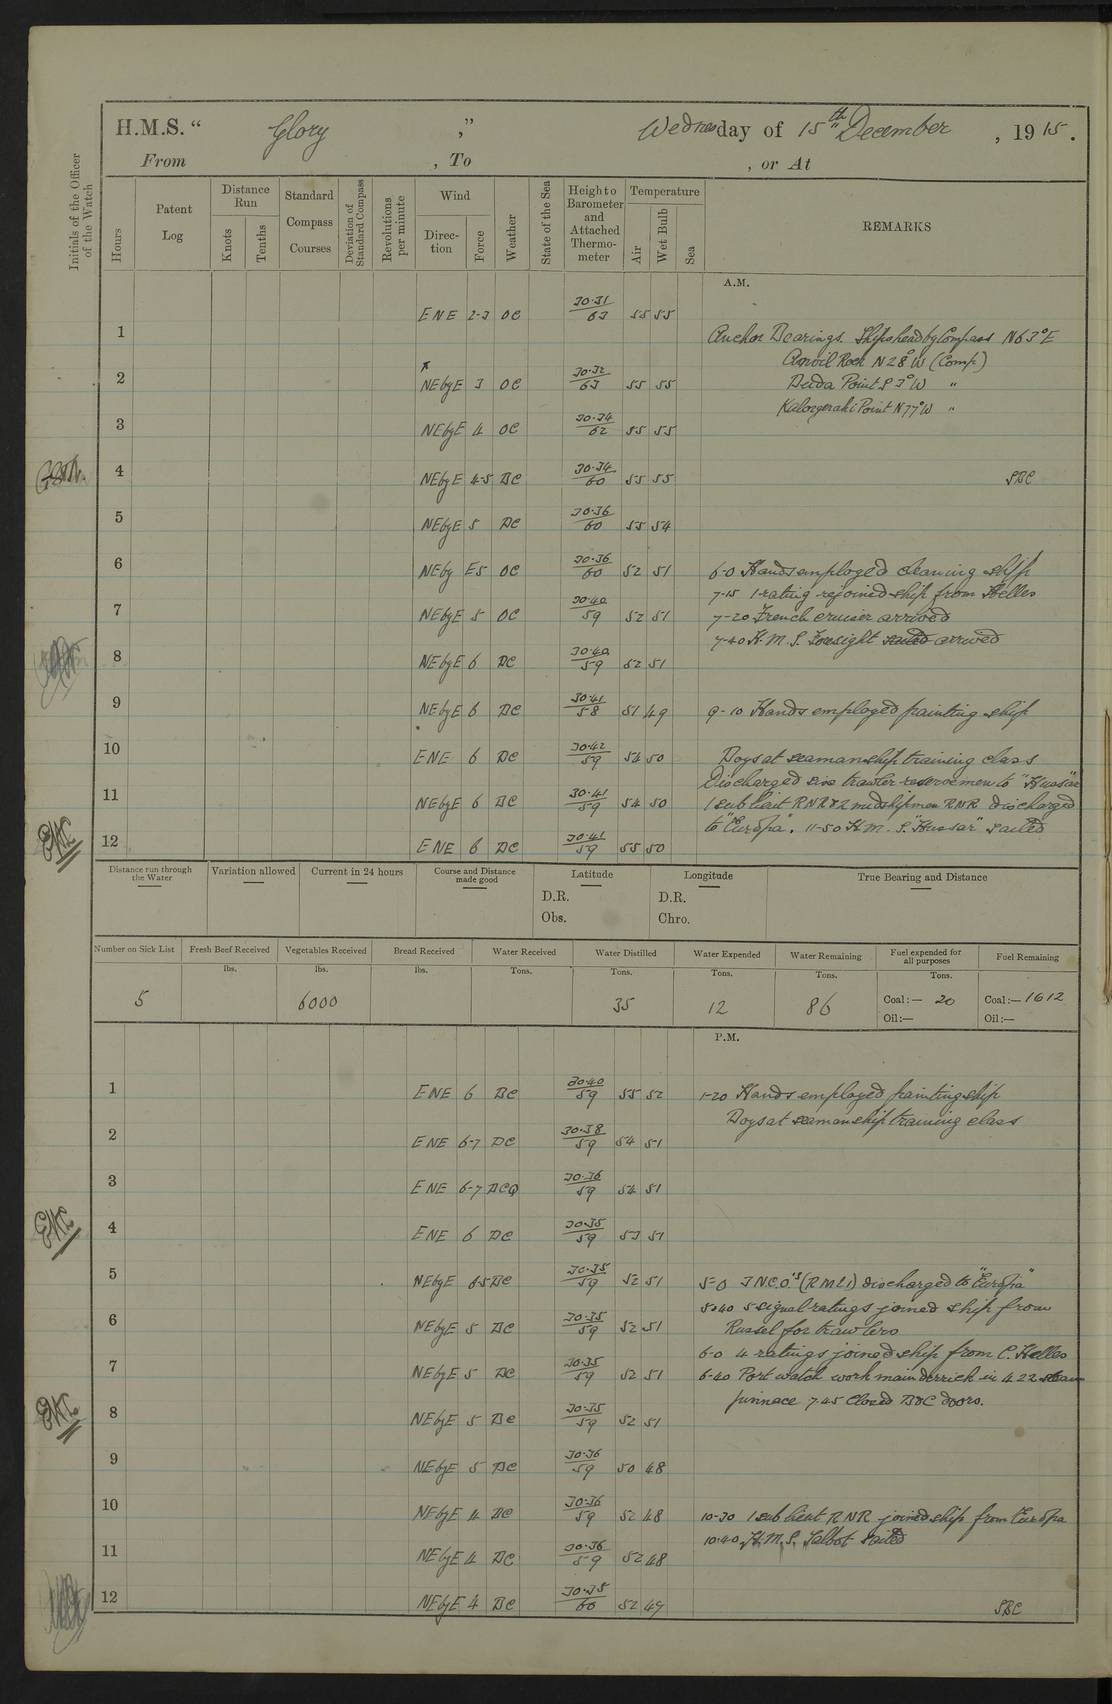 H.M.S. " Glory ," Wednesday of 15th December, 1915.
From , To , or At
Initials of the Officer of the Watch
Hours
Patent Log
Distance Run
Knots
Tenths
Standard Compass Courses
Deviation of Standard Compass
Revolutions per minute
Wind
Direction
Force
Weather
State of the Sea
Height of Barometer and Attached Thermometer
Temperature
Air
Wet Bulb
Sea
REMARKS
A.M.
1 ENE 2-3 OC 30.31/63 55 55
Anchor Bearings. Ships head by Compass N63°E
Anvil Rock N28°W (Comp)
2 NEbyE 3 OC 30.32/63 55 55 Point S3°W "
Point N77°W "
3 NEbyE 4 OC 30.34/62 55 55
4 NEbyE 4-5 BC 30.34/60 55 55 SBC
5 NEbyE 5 BC 30.36/60 55 54
6 NEby E5 OC 30.36/60 52 51 6-0 Hands employed cleaning ship
7-15 1 rating rejoined ship from Helles
7 NEbyE 5 OC 30.40/59 52 51 7-20 French cruiser arrived
7-40 H.M.S. Foresight sailed arrived
8 NEbyE 6 BC 30.40/59 52 51
9 NEbyE 6 BC 30.41/58 51 49 9-10 Hands employed painting ship
10 ENE 6 BC 30.42/59 54 50 Boys at seamanship training class
Discharged six trawler reservemen to "Hussar"
11 NEbyE 6 BC 30.41/59 54 50 1 sub lieut RNR & 2 midshipmen RNR discharged
to "Europa". 11-50 H.M.S. "Hussar" sailed
12 ENE 6 BC 30.41/59 55 50
Distance run through the Water
Variation allowed
Current in 24 hours
Course and Distance made good
Latitude
D.R.
Obs.
Longitude
D.R.
Chro.
True Bearing and Distance
Number on Sick List
Fresh Beef Received
Vegetables Received
Bread Received
Water Received
Water Distilled
Water Expended
Water Remaining
Fuel expended for all purposes
Fuel Remaining
lbs. lbs. lbs. Tons. Tons. Tons. Tons. Tons.
5 6000 35 12 86 Coal:— 20 Coal:— 1612
Oil:— Oil:—
P.M.
1 ENE 6 BC 30.40/59 55 52 1-20 Hands employed painting ship
Boys at seamanship training class
2 ENE 6-7 BC 30.38/59 54 51
3 ENE 6-7 BCQ 30.36/59 54 51
4 ENE 6 BC 30.35/59 53 51
5 NEbyE 6-5 BC 30.35/59 52 51 5-0 3 N.C.O's (RMLI) discharged to "Europa"
5-40 5 signal ratings joined ship from
6 NEbyE 5 BC 30.35/59 52 51 Russel for trawlers
6-0 4 ratings joined ship from C. Helles
7 NEbyE 5 BC 30.35/59 52 51 6-40 Port watch work main derrick in & 22 steam
pinnace 7.45 Closed B&C doors.
8 NEbyE 5 BC 30.35/59 52 51
9 NEbyE 5 BC 30.36/59 50 48
10 NEbyE 4 BC 30.36/59 52 48 10-30 1 sub lieut RNR joined ship from Europa
10.40 H.M.S. Talbot sailed
11 NEbyE 4 BC 30.36/59 52 48
12 NEbyE 4 BC 30.35/60 52 49 SBC